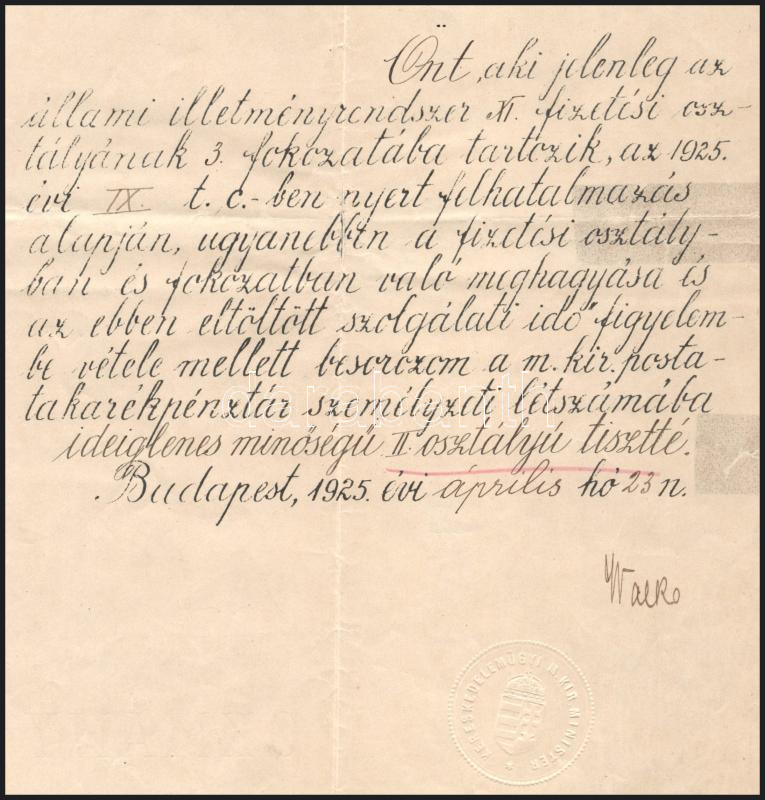 Önt, aki jelenleg az
állami illetményrendszer XI. fizetési osz-
tályának 3. fokozatába tartozik, az 1925.
évi IX. t. c.-ben nyert felhatalmazás
alapján, ugyanebben a fizetési osztály-
ban és fokozatban való meghagyása és
az ebben eltöltött szolgálati idő figyelem-
be vétele mellett besorozom a m. kir. posta-
takarékpénztár személyzeti létszámába
ideiglenes minőségű II. osztályú tisztté.
Budapest, 1925. évi április hó 23 n.
Walko
KERESKEDELEMÜGYI M. KIR. MINISTER
darabanth